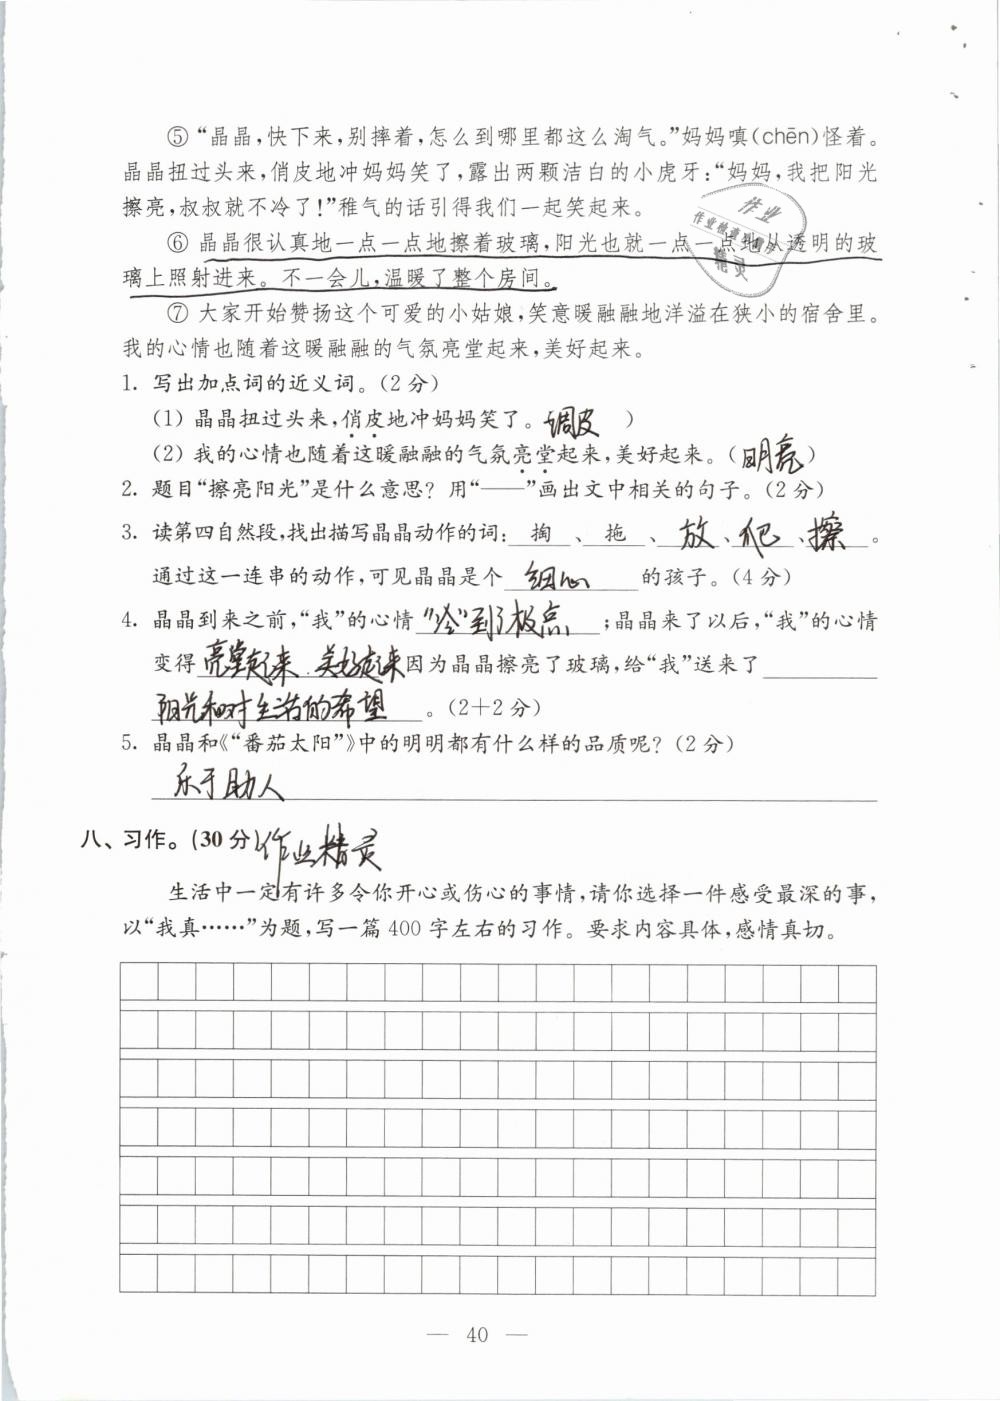 ⑤“晶晶,快下来,别摔着,怎么到哪里都这么淘气。”妈妈嗔(chēn)怪着。
晶晶扭过头来,俏皮地冲妈妈笑了,露出两颗洁白的小虎牙:“妈妈,我把阳光
擦亮,叔叔就不冷了!”稚气的话引得我们一起笑起来。
⑥ 晶晶很认真地一点一点地擦着玻璃,阳光也就一点一点地从透明的玻
璃上照射进来。不一会儿,温暖了整个房间。
⑦ 大家开始赞扬这个可爱的小姑娘,笑意暖融融地洋溢在狭小的宿舍里。
我的心情也随着这暖融融的气氛亮堂起来,美好起来。
1. 写出加点词的近义词。(2分)
(1) 晶晶扭过头来,俏皮地冲妈妈笑了。 调皮 )
(2) 我的心情也随着这暖融融的气氛亮堂起来,美好起来。(明亮)
2. 题目“擦亮阳光”是什么意思?用“——”画出文中相关的句子。(2分)
3. 读第四自然段,找出描写晶晶动作的词: 掏 、 拖 、 放 、爬 、擦 。
通过这一连串的动作,可见晶晶是个 细心 的孩子。(4分)
4. 晶晶到来之前,“我”的心情 “冷”到了极点 ;晶晶来了以后,“我”的心情
变得 亮堂起来、美好起来 因为晶晶擦亮了玻璃,给“我”送来了
阳光和对生活的希望 。(2+2分)
5. 晶晶和《“番茄太阳”》中的明明都有什么样的品质呢?(2分)
乐于助人
八、习作。(30分) 作业精灵
生活中一定有许多令你开心或伤心的事情,请你选择一件感受最深的事,
以“我真……”为题,写一篇400字左右的习作。要求内容具体,感情真切。
— 40 —
作业
作业检查
精灵